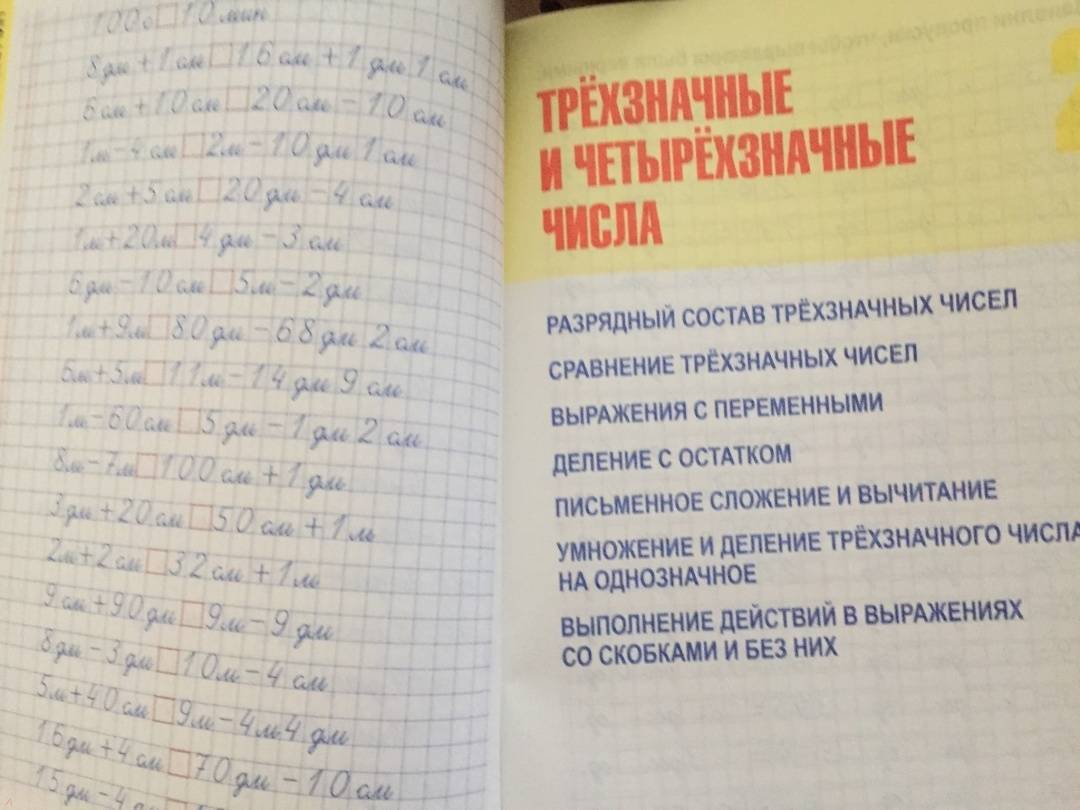 100с 10 мин
8 дм + 1 см 16 см + 1 дм 1 см
6 см + 10 см 20 см - 10 см
1 м - 4 см 2 м - 10 дм 1 см
2 см + 5 см 20 дм - 4 см
1 м + 20 м 4 дм - 3 см
6 дм - 10 см 5 м - 2 дм
1 м + 9 м 80 дм - 68 дм 2 см
6 м + 5 м 11 м - 14 дм 9 см
1 м - 60 см 5 дм - 1 дм 2 см
8 м - 7 м 100 см + 1 дм
3 дм + 20 см 50 см + 1 м
2 м + 2 см 32 см + 1 м
9 см + 90 дм 9 м - 9 дм
8 дм - 3 дм 10 м - 4 см
5 м + 40 см 9 м - 4 м 4 дм
16 дм + 4 см 70 дм - 10 см
15 дм - 4
ТРЁХЗНАЧНЫЕ
И ЧЕТЫРЁХЗНАЧНЫЕ
ЧИСЛА
РАЗРЯДНЫЙ СОСТАВ ТРЁХЗНАЧНЫХ ЧИСЕЛ
СРАВНЕНИЕ ТРЁХЗНАЧНЫХ ЧИСЕЛ
ВЫРАЖЕНИЯ С ПЕРЕМЕННЫМИ
ДЕЛЕНИЕ С ОСТАТКОМ
ПИСЬМЕННОЕ СЛОЖЕНИЕ И ВЫЧИТАНИЕ
УМНОЖЕНИЕ И ДЕЛЕНИЕ ТРЁХЗНАЧНОГО ЧИСЛА
НА ОДНОЗНАЧНОЕ
ВЫПОЛНЕНИЕ ДЕЙСТВИЙ В ВЫРАЖЕНИЯХ
СО СКОБКАМИ И БЕЗ НИХ